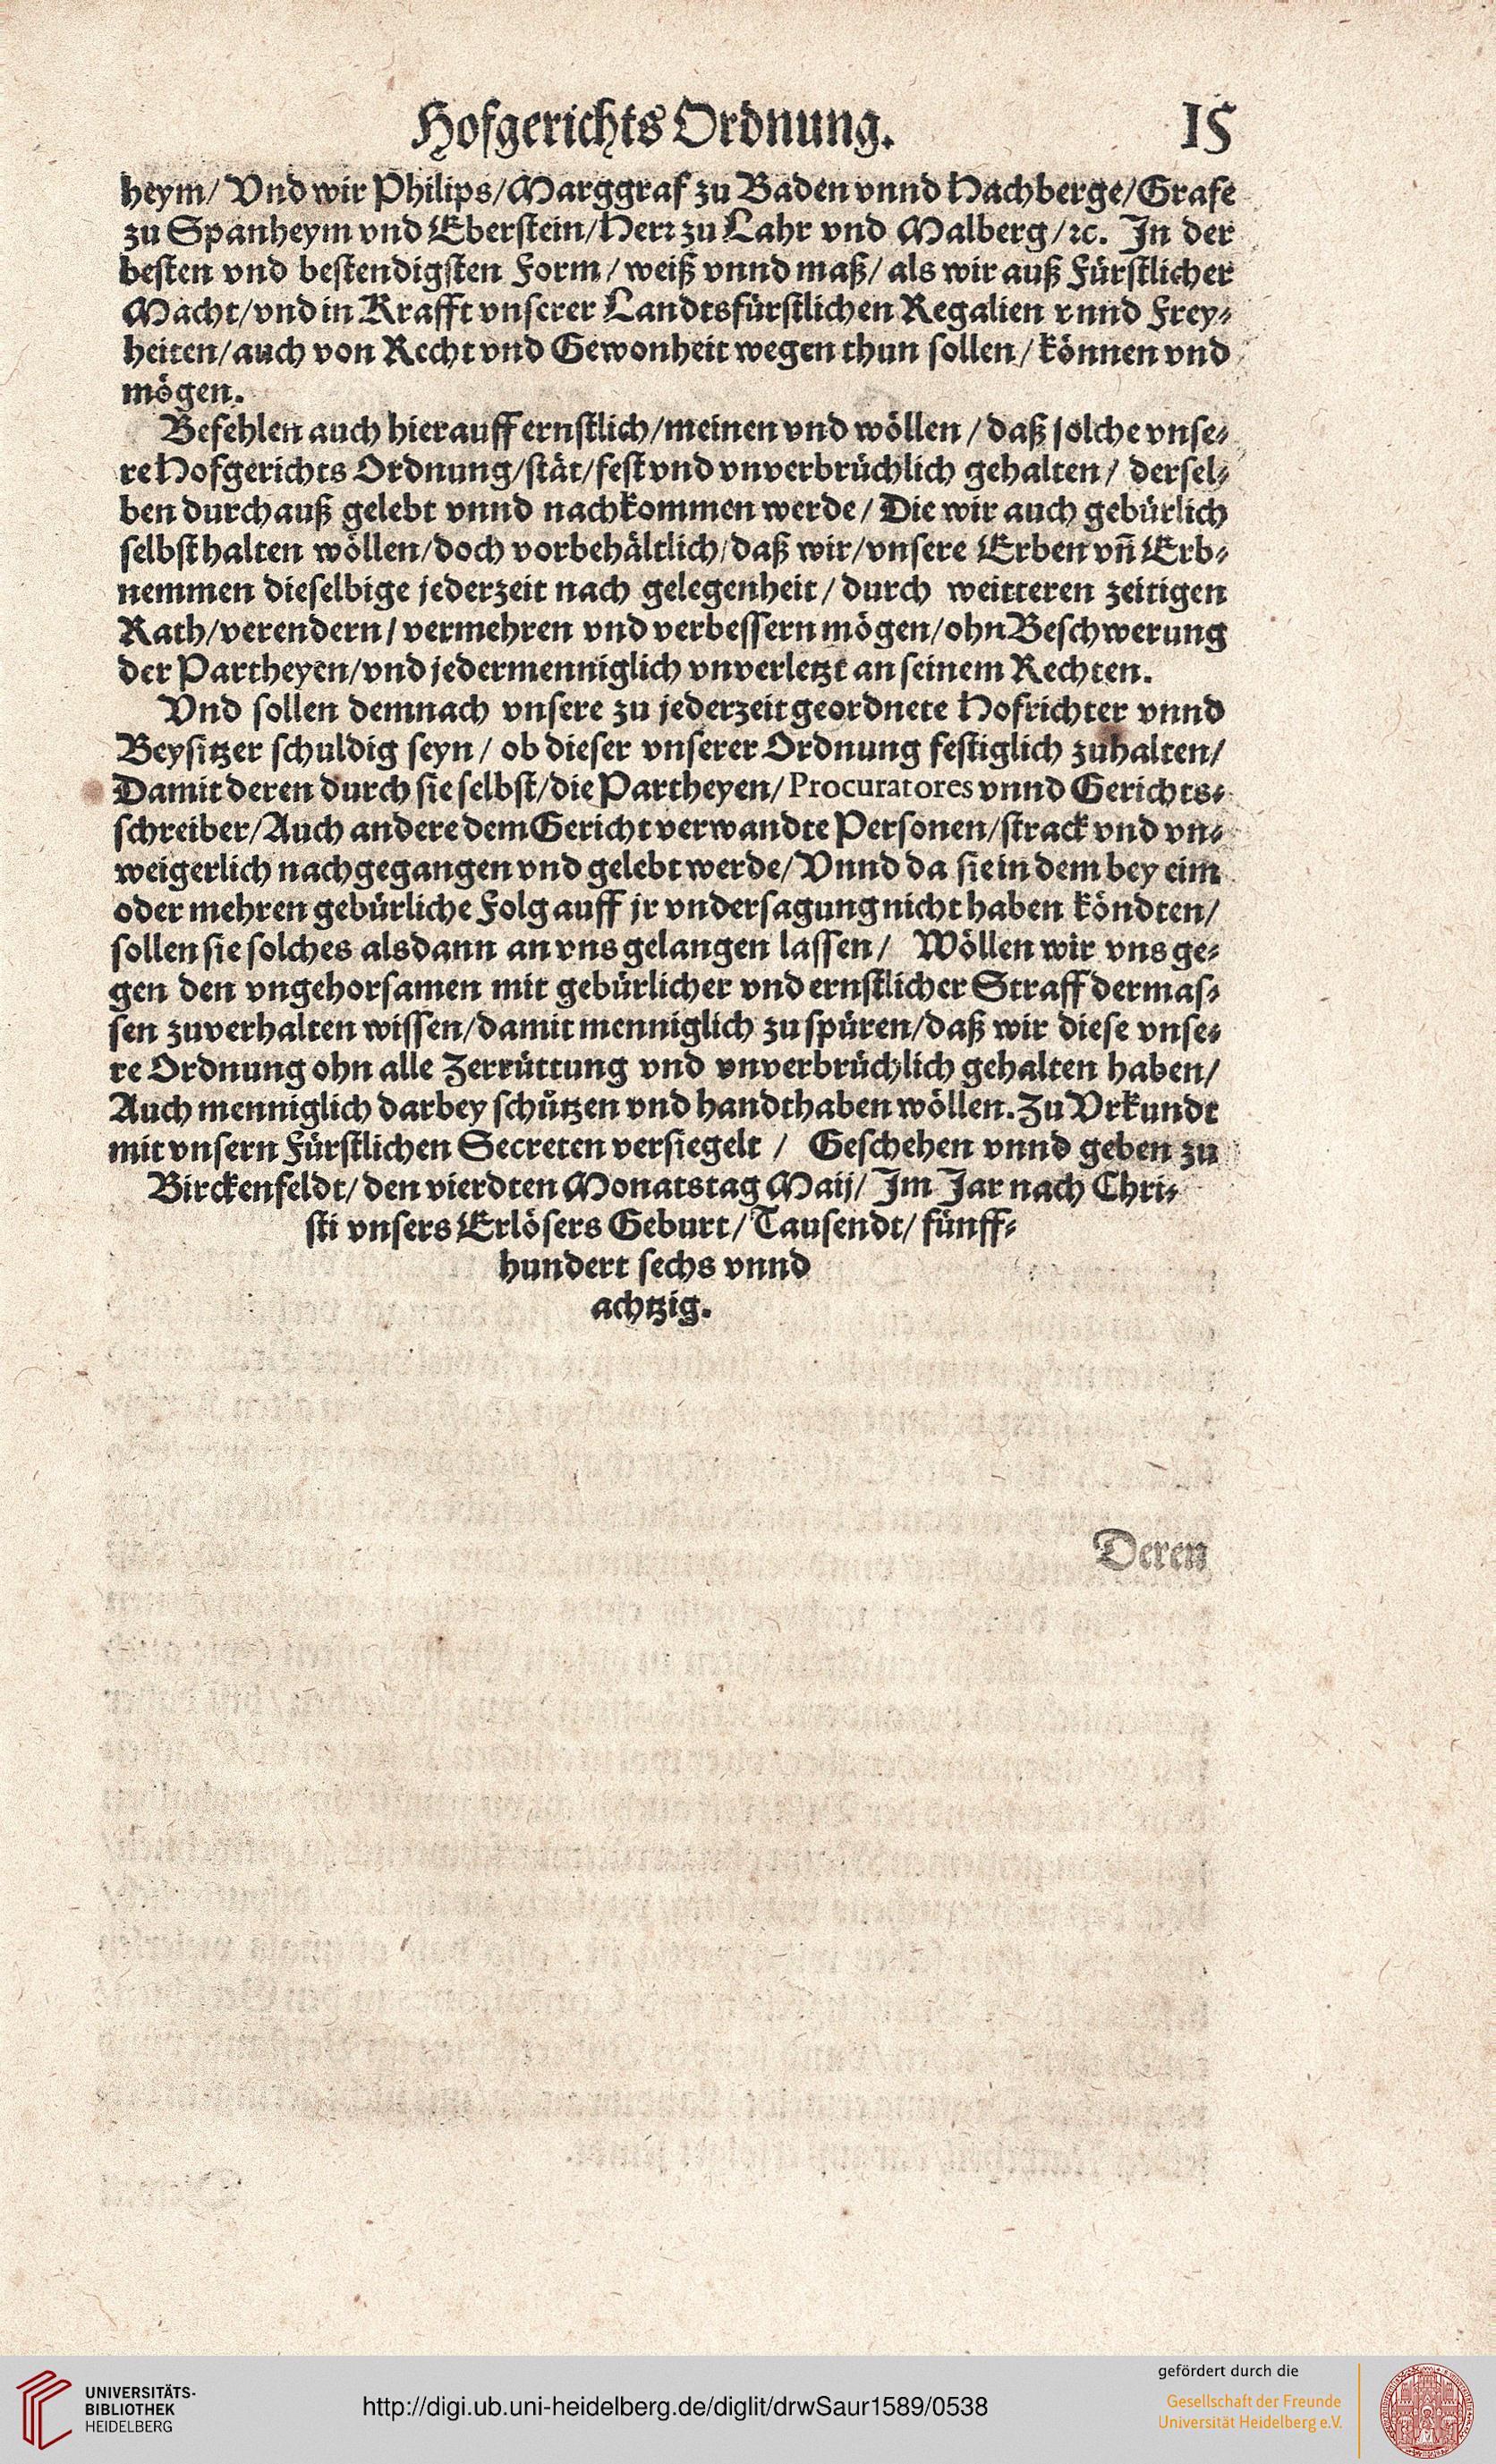 Hofgerichts Ordnung. 15
heym/ Vnd wir Philips/Marggraf zu Baden vnnd Hachberge/Grafe
zu Spanheym vnd Eberstein/Herr zu Lahr vnd Malberg/ꝛc. In der
besten vnd bestendigsten Form/weiß vnnd maß/ als wir auß Fürstlicher
Macht/vnd in Krafft vnserer Landtsfürstlichen Regalien vnnd Frey⸗
heiten/auch von Recht vnd Gewonheit wegen thun sollen/können vnd
mögen.
Befehlen auch hierauff ernstlich/meinen vnd wöllen/daß solche vnse⸗
re Hofgerichts Ordnung/stät/fest vnd vnverbrüchlich gehalten/ dersel⸗
ben durchauß gelebt vnnd nachkommen werde/Die wir auch gebürlich
selbst halten wöllen/doch vorbehältlich/daß wir/vnsere Erben vñ Erb⸗
nemmen dieselbige jederzeit nach gelegenheit/durch weitteren zeitigen
Rath/verendern/vermehren vnd verbessern mögen/ohn Beschwerung
der Partheyen/vnd jedermenniglich vnverletzt an seinem Rechten.
Vnd sollen demnach vnsere zu jederzeit geordnete Hofrichter vnnd
Beysitzer schuldig seyn/ ob dieser vnserer Ordnung festiglich zuhalten/
Damit deren durch sie selbst/die Partheyen/Procuratores vnnd Gerichts⸗
schreiber/Auch andere dem Gericht verwandte Personen/strack vnd vn⸗
weigerlich nachgegangen vnd gelebt werde/Vnnd da sie in dem bey eim
oder mehren gebürliche Folg auff jr vndersagung nicht haben köndten/
sollen sie solches alsdann an vns gelangen lassen/ Wöllen wir vns ge⸗
gen den vngehorsamen mit gebürlicher vnd ernstlicher Straff dermas⸗
sen zuverhalten wissen/damit menniglich zu spüren/daß wir diese vnse⸗
re Ordnung ohn alle Zerrüttung vnd vnverbrüchlich gehalten haben/
Auch menniglich darbey schützen vnd handthaben wöllen. Zu Vrkundt
mit vnsern Fürstlichen Secreten versiegelt / Geschehen vnnd geben zu
Birckenfeldt/den vierdten Monatstag Maij/Im Jar nach Chri⸗
sti vnsers Erlösers Geburt/Tausendt/fünff⸗
hundert sechs vnnd
achtzig.
Deren
UNIVERSITÄTS-
BIBLIOTHEK
HEIDELBERG
http://digi.ub.uni-heidelberg.de/diglit/drwSaur1589/0538
gefördert durch die
Gesellschaft der Freunde
Universität Heidelberg e.V.